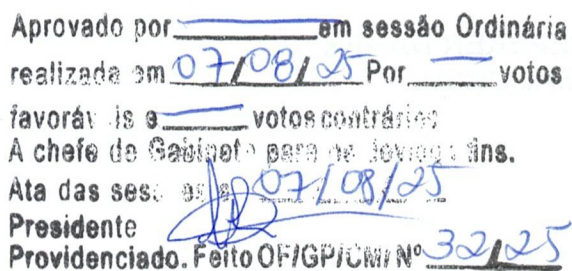 Aprovado por em sessão Ordinária
realizada em 07/08/25 Por votos
favoráv is e votos contrários
A chefe do Gabinete para os devidos fins.
Ata das ses 07/08/25
Presidente
Providenciado. Feito OF/GP/CM/ Nº 32/25